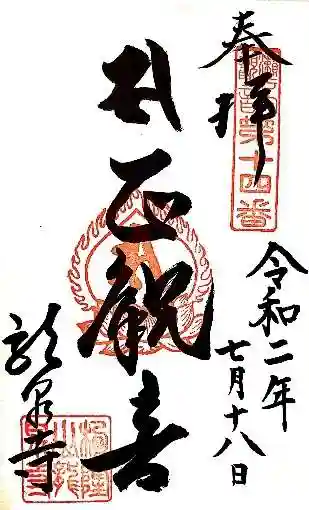 奉拝
第十四番
令和二年
七月十八日
正観音
龍泉寺